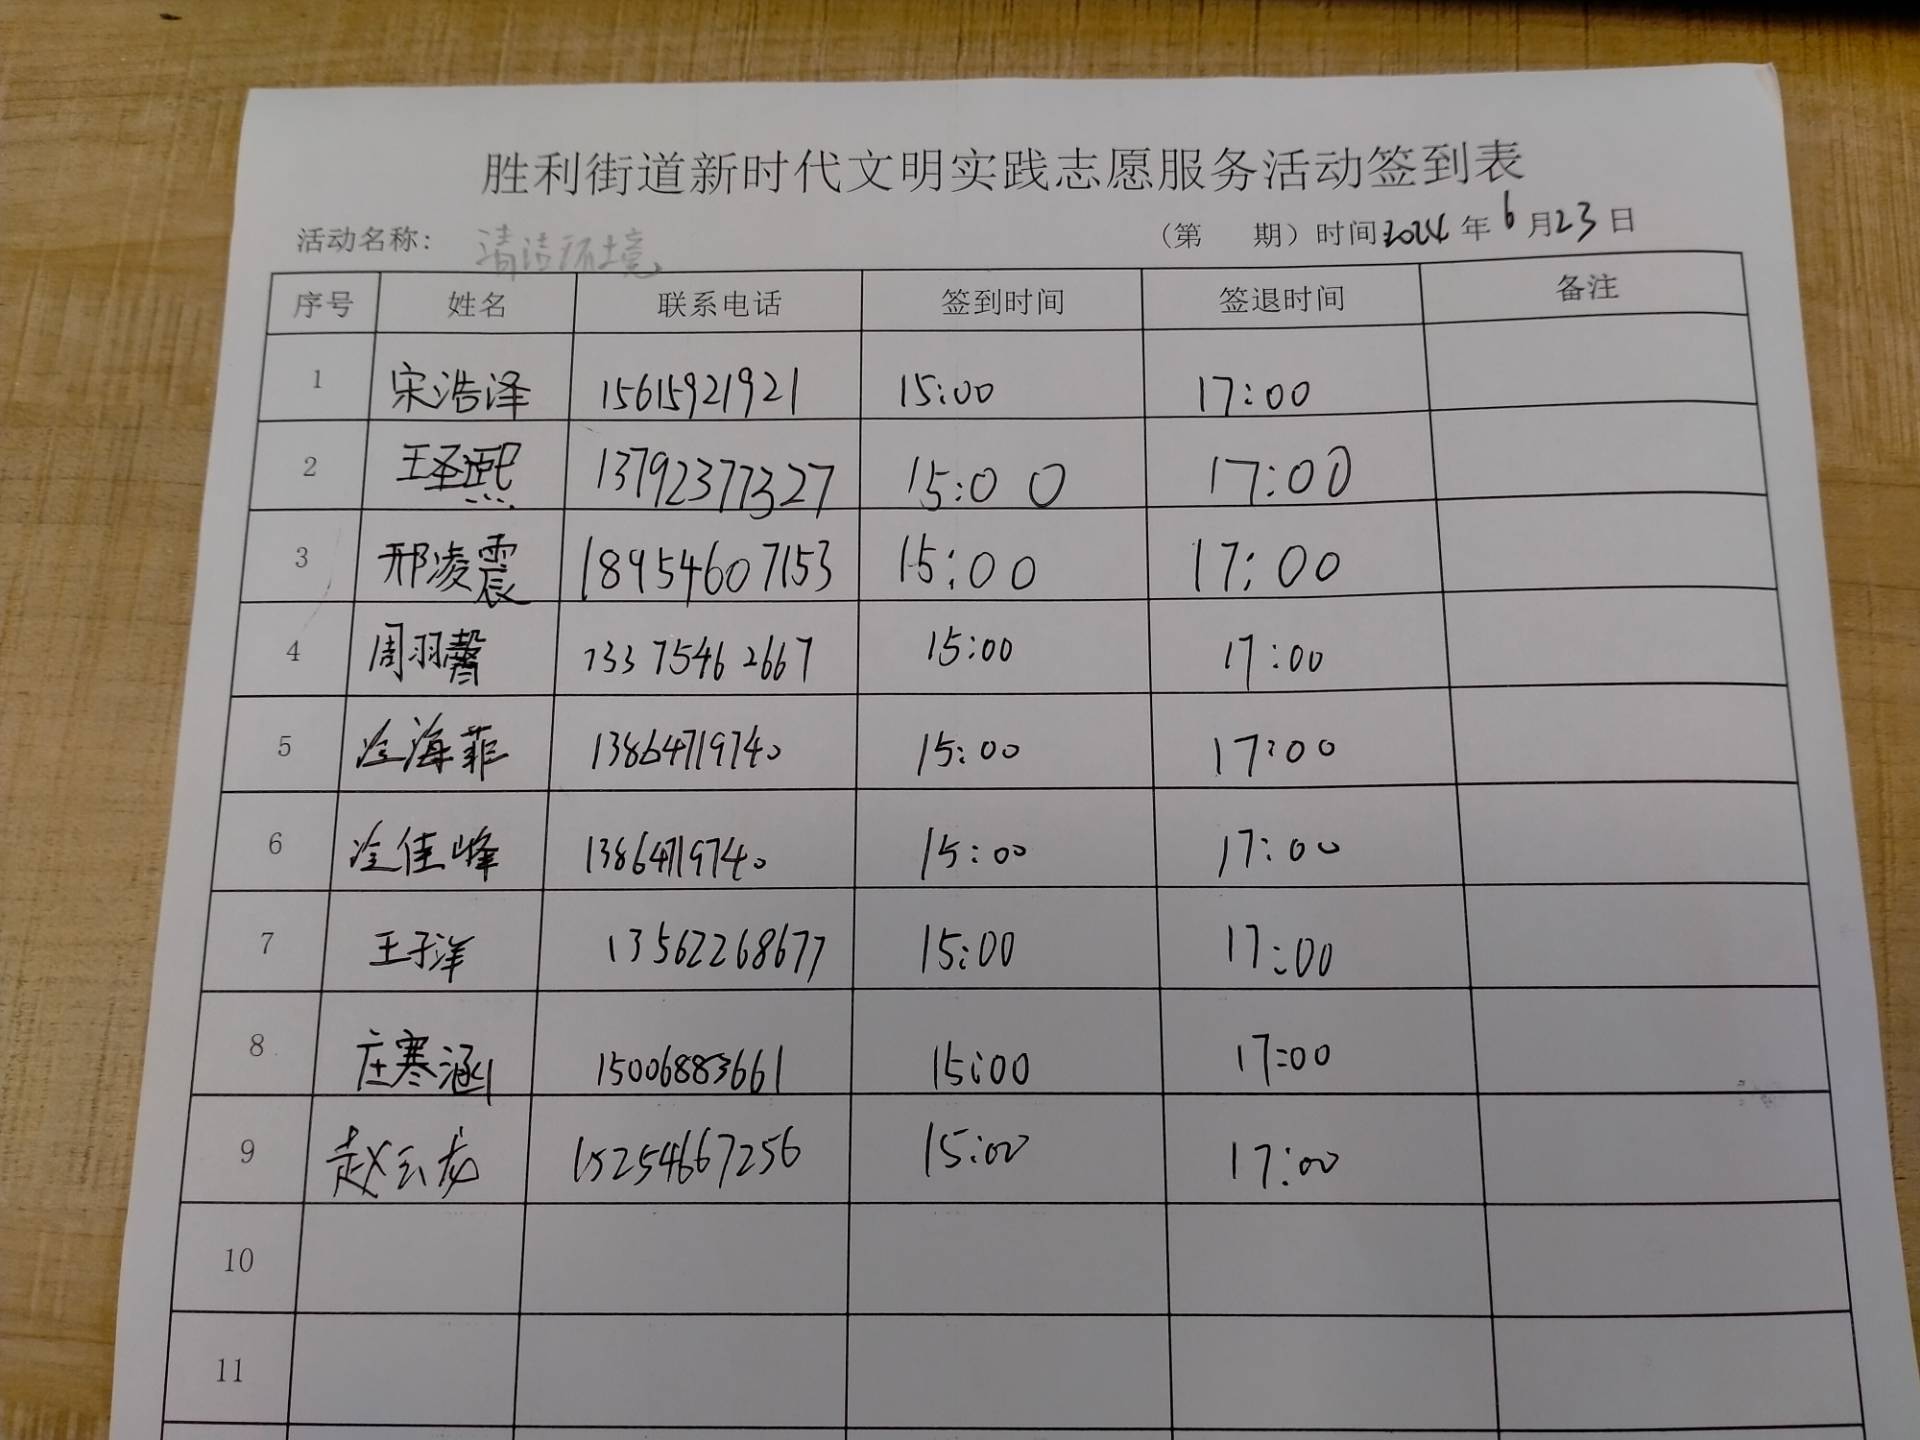 胜利街道新时代文明实践志愿服务活动签到表
活动名称： 清洁环境 （第 期）时间 2024 年 6 月 23 日
序号 姓名 联系电话 签到时间 签退时间 备注
1 宋浩泽 15615921921 15:00 17:00
2 王圣熙 13792377327 15:00 17:00
3 邢凌震 18954607153 15:00 17:00
4 周羽馨 13375462667 15:00 17:00
5 冷海菲 13864719740 15:00 17:00
6 冷佳峰 13864719740 15:00 17:00
7 王子洋 13562268677 15:00 17:00
8 庄寒涵 15006883661 15:00 17:00
9 赵云龙 15254667256 15:00 17:00
10
11